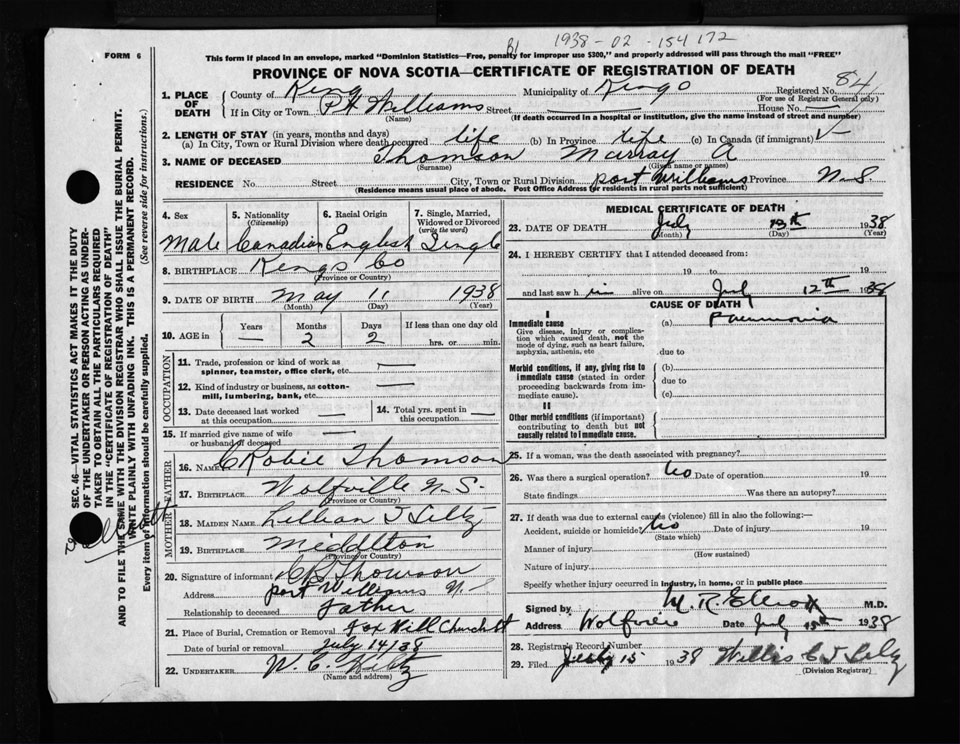 1938-02-154172
FORM 6
This form if posted in an envelope, marked "Dominion Statistics—Free, penalty for improper use $300," and properly addressed will pass through the mail "FREE"
PROVINCE OF NOVA SCOTIA—CERTIFICATE OF REGISTRATION OF DEATH
84
1. PLACE OF DEATH County of Kings Municipality of Kings Registered No.
(For use of Registrar General only)
If in City or Town Pt Williams Street House No.
(Name) (If death occurred in a hospital or institution, give the name instead of street and number)
2. LENGTH OF STAY (in years, months and days)
(a) In City, Town or Rural Division where death occurred life (b) In Province life (c) In Canada (if immigrant)
3. NAME OF DECEASED Thomson Murray A
(Surname) (Given name or names)
RESIDENCE No. Street City, Town or Rural Division Port Williams Province N.S.
(Residence means usual place of abode. Post Office Address for residents in rural parts not sufficient)
4. Sex 5. Nationality (Citizenship) 6. Racial Origin 7. Single, Married, Widowed or Divorced (write the word)
Male Canadian English Single
8. BIRTHPLACE Kings Co
(Province or Country)
9. DATE OF BIRTH May 11 1938
(Month) (Day) (Year)
10. AGE in Years Months Days If less than one day old
— 2 2 hrs. or min.
OCCUPATION
11. Trade, profession or kind of work as spinner, teamster, office clerk, etc. —
12. Kind of industry or business, as cotton-mill, lumbering, bank, etc. —
13. Date deceased last worked at this occupation — 14. Total yrs. spent in this occupation —
15. If married give name of wife or husband of deceased —
FATHER
16. NAME C Robie Thomson
17. BIRTHPLACE Wolfville N.S.
(Province or Country)
MOTHER
18. MAIDEN NAME Lillian
19. BIRTHPLACE Middleton
(Province or Country)
20. Signature of informant CR Thomson
Address Port Williams N
Relationship to deceased father
21. Place of Burial, Cremation or Removal Fox Hill
Date of burial or removal July 14/38
22. UNDERTAKER W. C.
(Name and address)
MEDICAL CERTIFICATE OF DEATH
23. DATE OF DEATH July 13th 1938
(Month) (Day) (Year)
24. I HEREBY CERTIFY that I attended deceased from:
19 to 19
and last saw him alive on July 12th 1938
CAUSE OF DEATH
I
Immediate cause (a) Pneumonia
Give disease, injury or complication which caused death, not the mode of dying, such as heart failure, asphyxia, asthenia, etc
due to
Morbid conditions, if any, giving rise to immediate cause (stated in order proceeding backwards from immediate cause).
(b)
due to
(c)
II
Other morbid conditions (if important) contributing to death but not causally related to immediate cause.
25. If a woman, was the death associated with pregnancy?
26. Was there a surgical operation? No Date of operation 19
State findings Was there an autopsy?
27. If death was due to external causes (violence) fill in also the following:—
Accident, suicide or homicide? No Date of injury 19
(State which)
Manner of injury
(How sustained)
Nature of injury
Specify whether injury occurred in industry, in home, or in public place
Signed by M. R. Elliott M.D.
Address Wolfville Date July 15th 1938
28. Registrar's Record Number
29. Filed July 15 1938 Willis
(Division Registrar)
SEC. 46—VITAL STATISTICS ACT MAKES IT THE DUTY
OF THE UNDERTAKER OR PERSON ACTING AS UNDER-
TAKER TO OBTAIN ALL THE PARTICULARS REQUIRED
IN THE "CERTIFICATE OF REGISTRATION OF DEATH"
AND TO FILE THE SAME WITH THE DIVISION REGISTRAR WHO SHALL ISSUE THE BURIAL PERMIT.
WRITE PLAINLY WITH UNFADING INK. THIS IS A PERMANENT RECORD.
Every item of information should be carefully supplied. (See reverse side for instructions.)